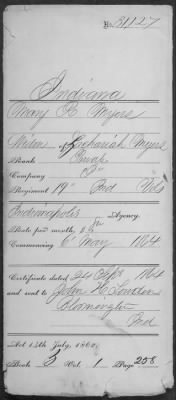 No. 31127
Indiana
Mary R. Myers
Widow of Zachariah Myers
Rank
Company "D"
Regiment 19" Ind Vols
Indianapolis Agency.
Rate per month, $8
Commencing 6" May 1864
Certificate dated 24 Sept 1864
and sent to John H. Louden
Bloomington
Ind
Act 14th July, 1862.
Book 3 Vol. 1 Page 258